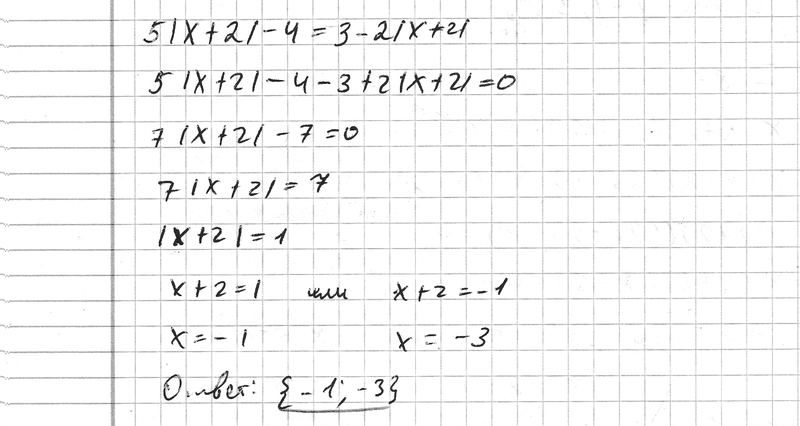 5|x+2|-4=3-2|x+2|
5|x+2|-4-3+2|x+2|=0
7|x+2|-7=0
7|x+2|=7
|x+2|=1
x+2=1 или x+2=-1
x=-1 x=-3
Ответ: {-1; -3}